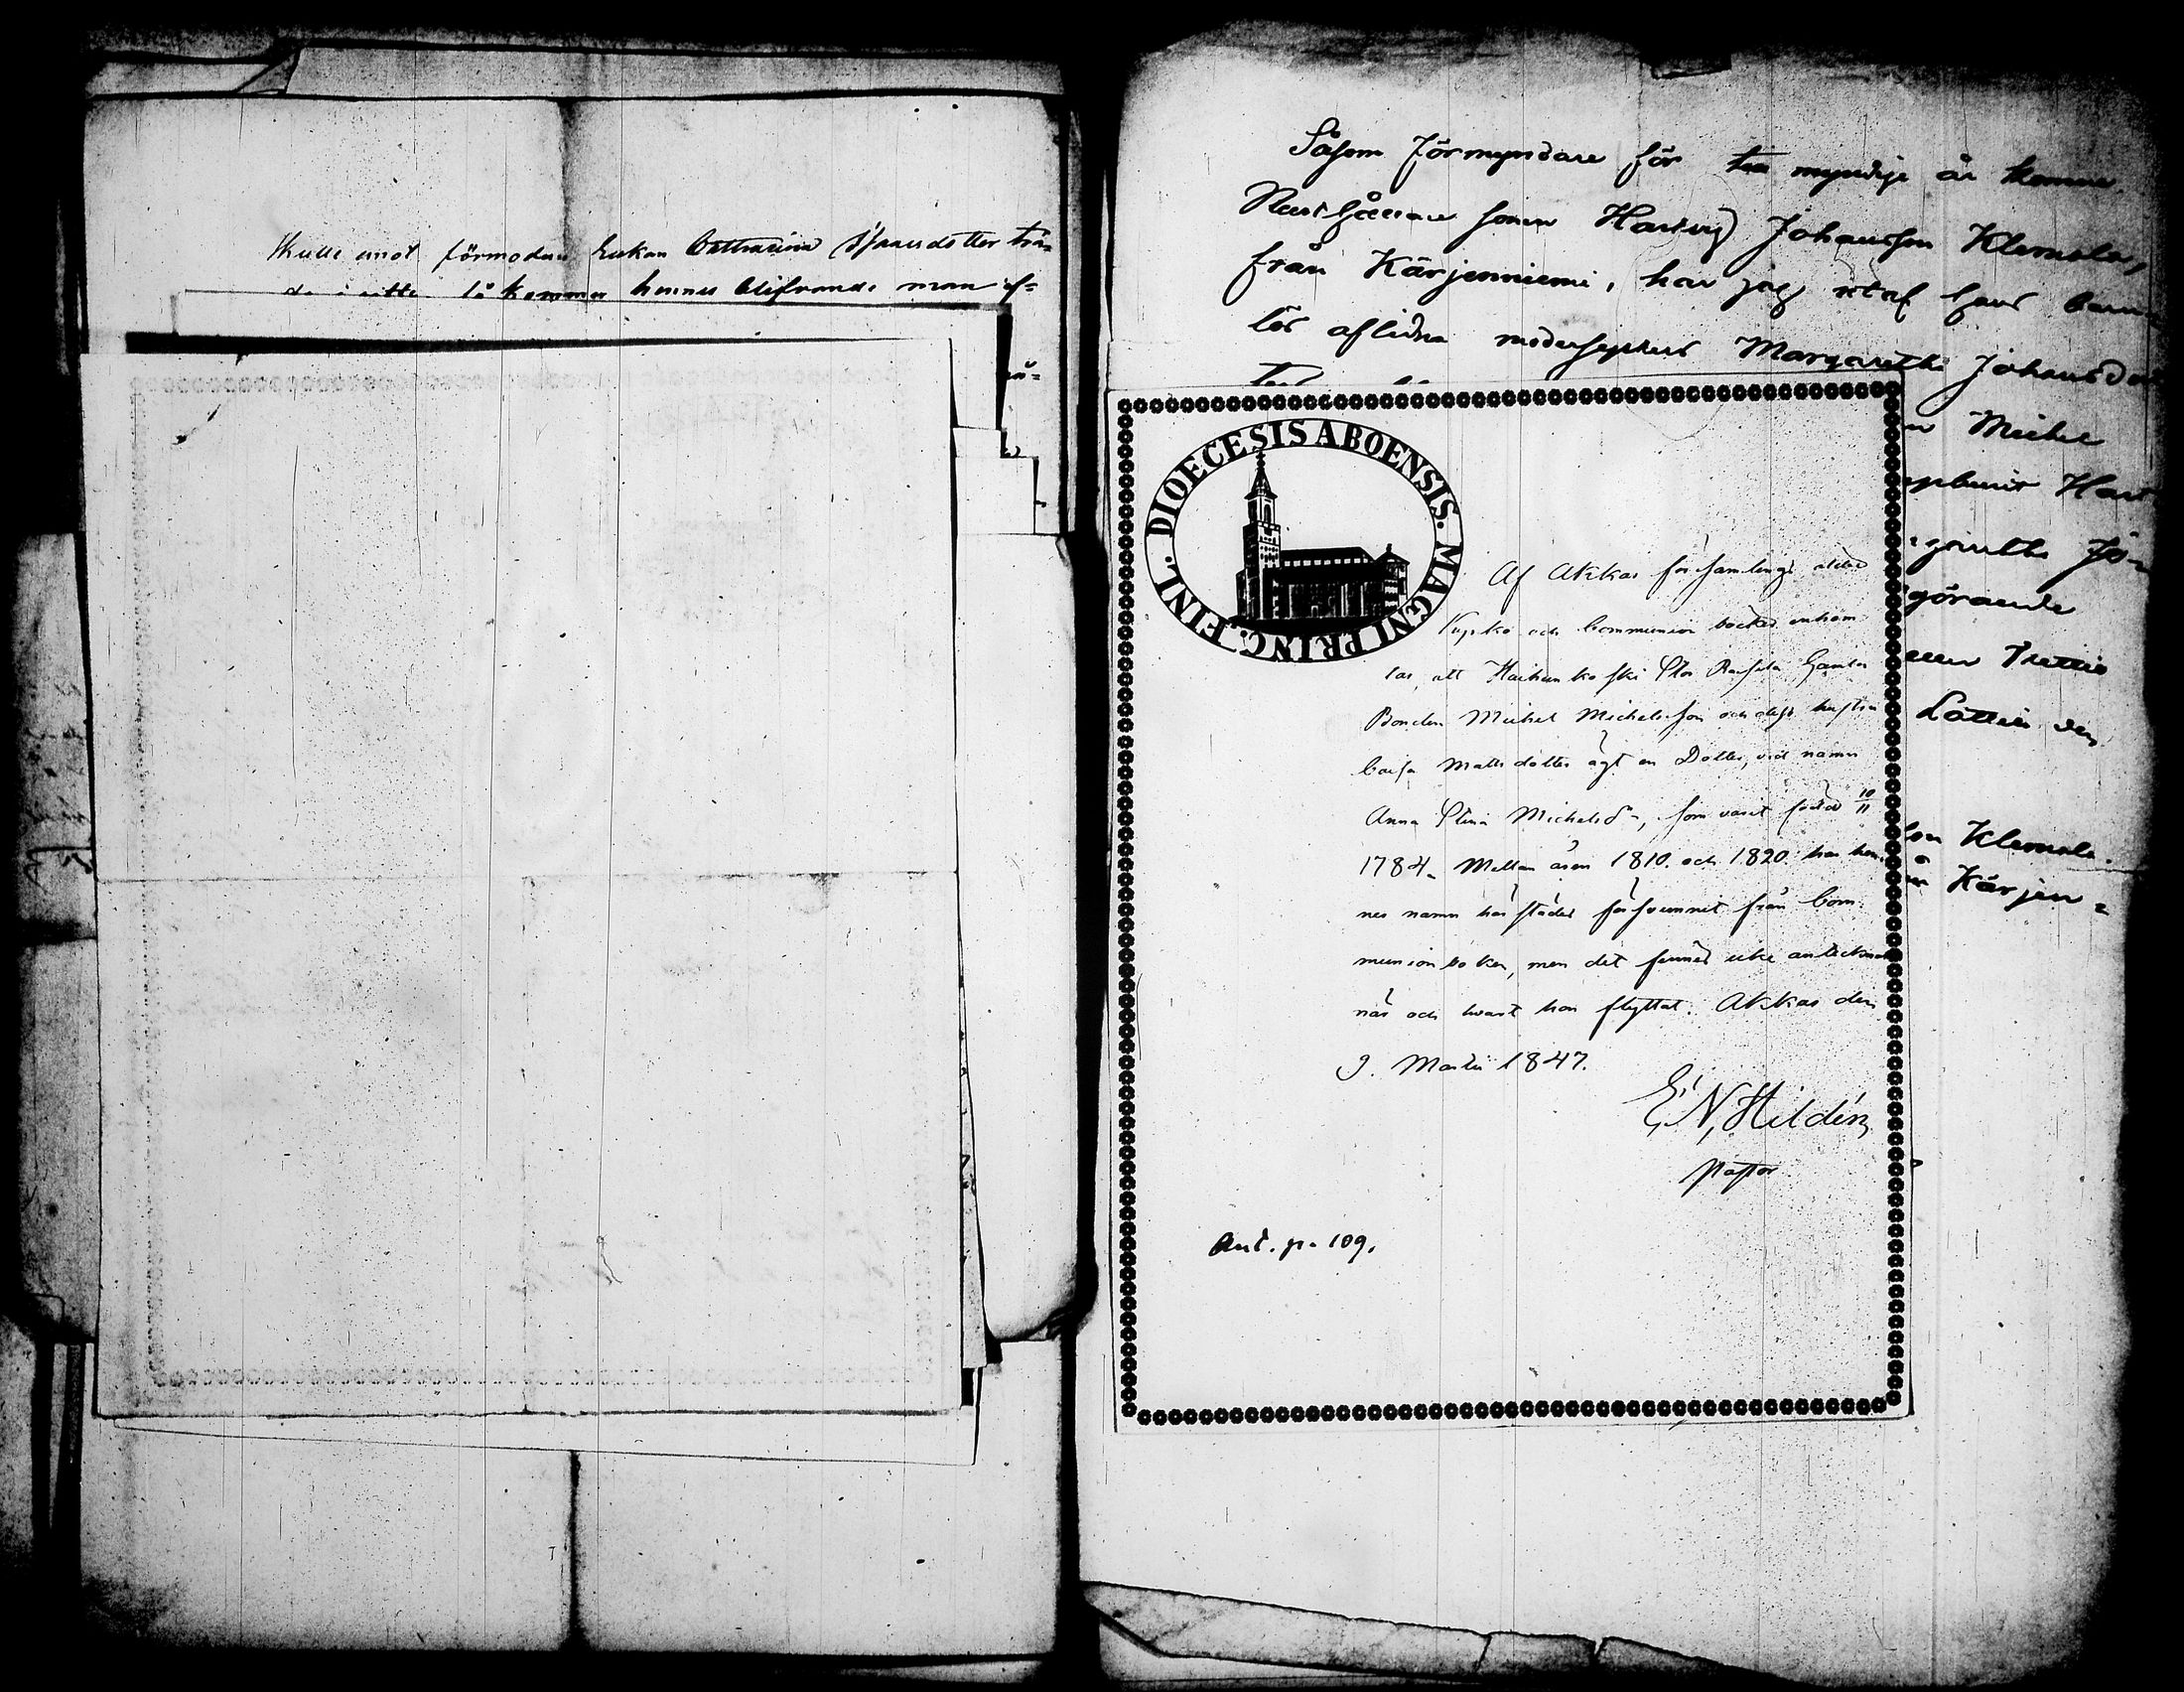 Skulle emot förmodan Enkan Catharina Isaacsdotter trä-
då kommer hennes blifvande man ef-
Såsom Förmyndare för till myndige år komne
Rusthållare sonen Hartvig Johansson Klemola,
från Kärjenniemi, har jag utaf hans
ter aflidna modersysters Margaretha Johansdot
n Michel
Hart
garetha Jo-
görande
Trettio
Lottein den
son Klemola.
Kärjen-
DIOECESIS ABOENSIS. MAGNI PRINC. FINL.
Af Akkas församlings äldre
Kyrko och Communion böcker inhäm-
tas, att Haihunkoski Stor Raisula Gamla
Bonden Michel Michelsson och dess hustru
Caisa Mattsdotter ägt en Dotter, vid namn
Anna Stina Michelsdr, som varit född 10/11
1784. Mellan åren 1810 och 1820 har hen-
nes namn härstädes försvunnit från Com-
munionboken, men det finnes icke antecknat
när och hvart hon flyttat. Akkas den
9. Martii 1847.
E. N. Hildén
Pastor
Ant. p. 109.